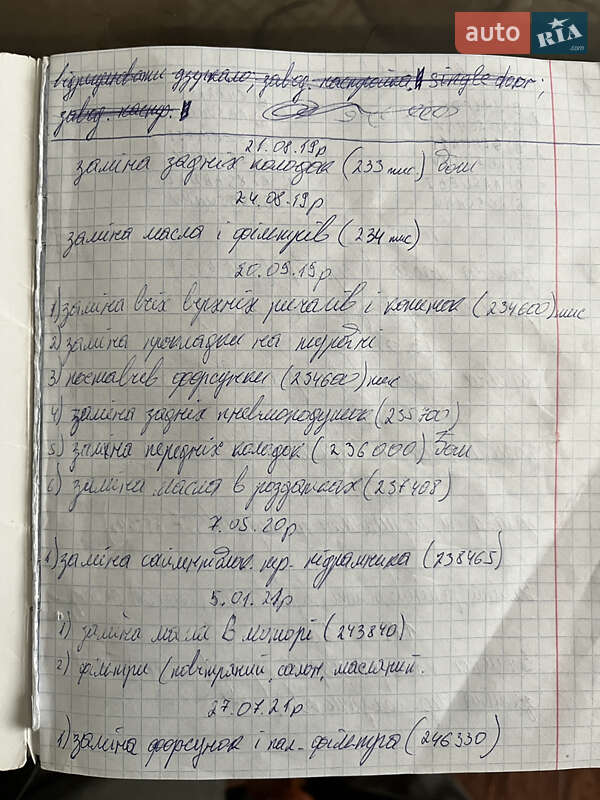 auto RIA .com
відрядивання дзеркало, завод. настройка, single door;
завод. настр.
21.08.19р
заміна задніх колодок (233 тис.) Bosh
24.08.19р
заміна масла і фільтрів (234 тис)
20.09.19р
1) заміна всіх верхніх ричагів і кошток (234600) тис
2) заміна прокладки на піддоні
3) поставив форсунки (234600) тис
4) заміна задніх пневмоподушок (235700)
5) заміна передніх колодок (236000) Bosh
6) заміна масла в роздатках (237408)
7.05.20р
1) заміна сайлентблок пер. підрамника (238465)
5.01.21р
1) заміна масла в моторі (243840)
2) фільтри (повітряний, салон, масляний.
27.07.21р
1) заміна форсунок і пал. фільтра (246330)